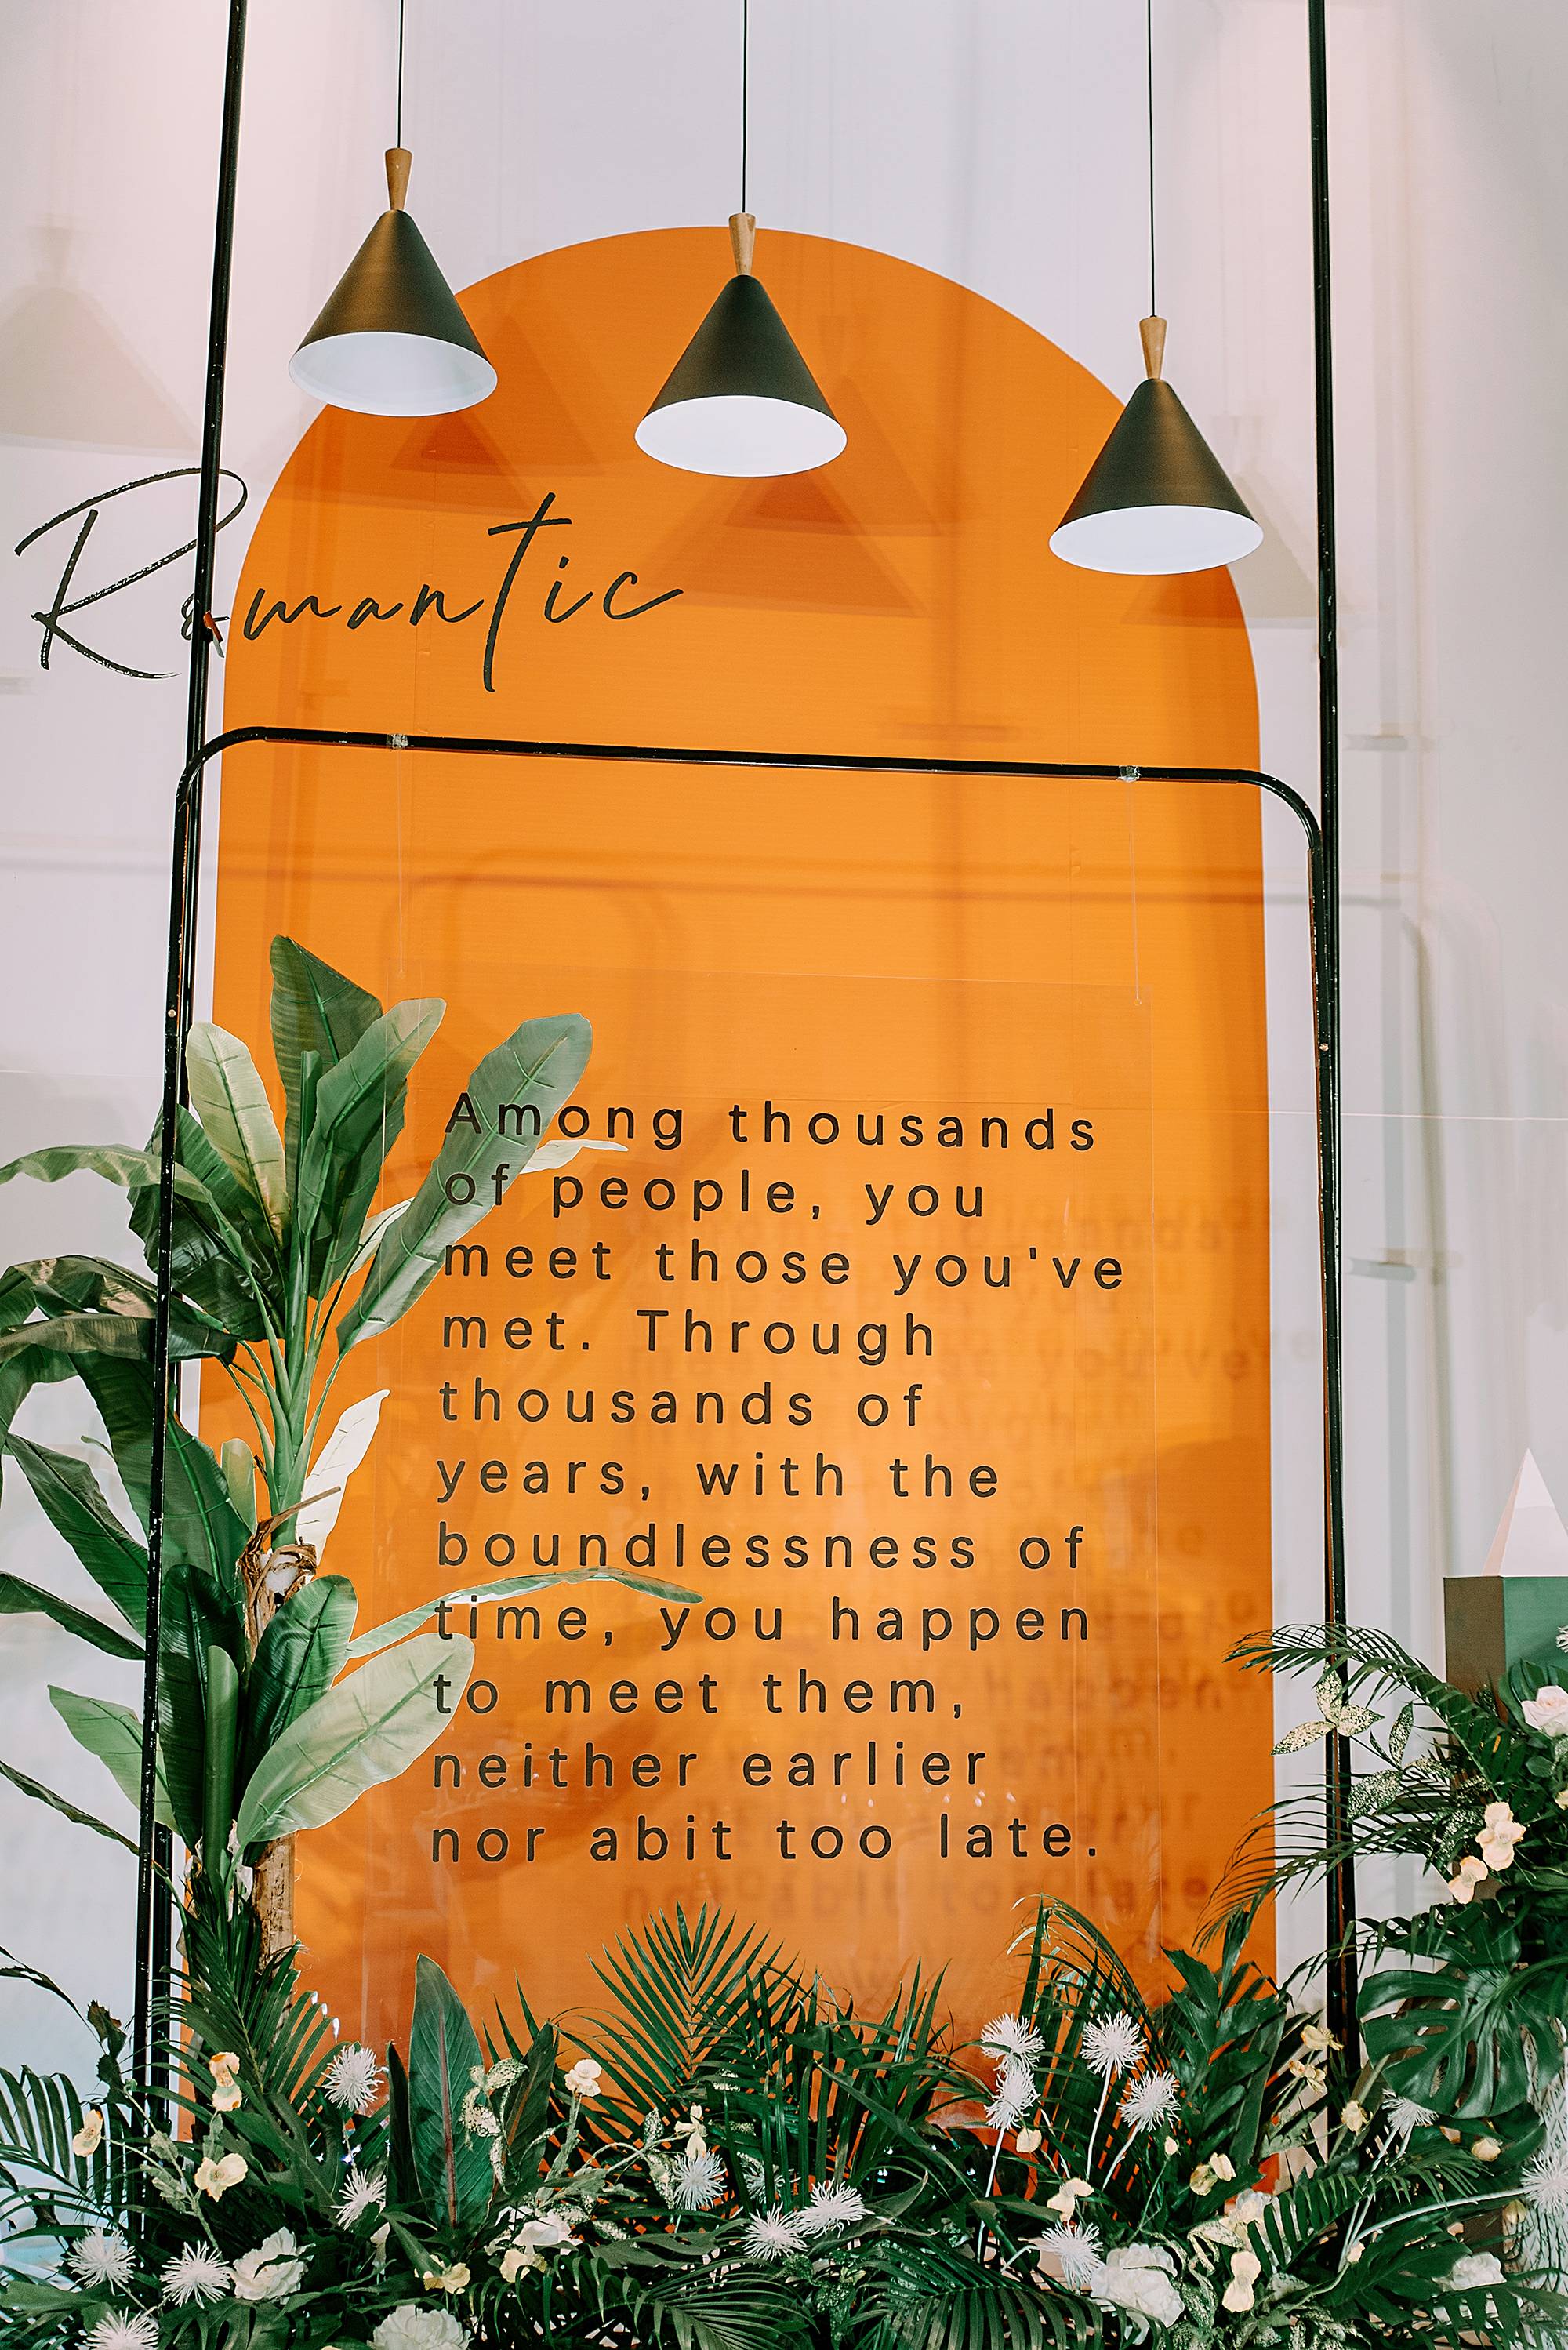 Romantic
Among thousands
of people, you
meet those you've
met. Through
thousands of
years, with the
boundlessness of
time, you happen
to meet them,
neither earlier
nor abit too late.